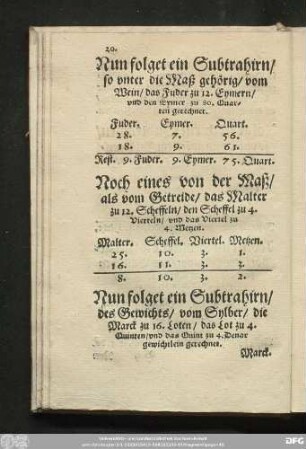 20.
Nun folget ein Subtrahirn/
so vnter die Maß gehörig/ vom
Wein/ das Fuder zu 12. Eymern/
vnd den Eymer zu 80. Quar-
ten gerechnet.
Fuder. Eymer. Quart.
28. 7. 56.
18. 9. 61.
Rest. 9. Fuder. 9. Eymer. 75. Quart.
Noch eines von der Maß/
als vom Getreide/ das Malter
zu 12. Scheffeln/ den Scheffel zu 4.
Vierteln/ vnd das Viertel zu
4. Metzen.
Malter. Scheffel. Viertel. Metzen.
25. 10. 3. 1.
16. 11. 3. 3.
8. 10. 3. 2.
Nun folget ein Subtrahirn/
des Gewichts/ vom Sylber/ die
Marck zu 16. Loten/ das Lot zu 4.
Quinten/ vnd das Quint zu 4. Denar
gewichtlein gerechnet.
Marck.
DFG